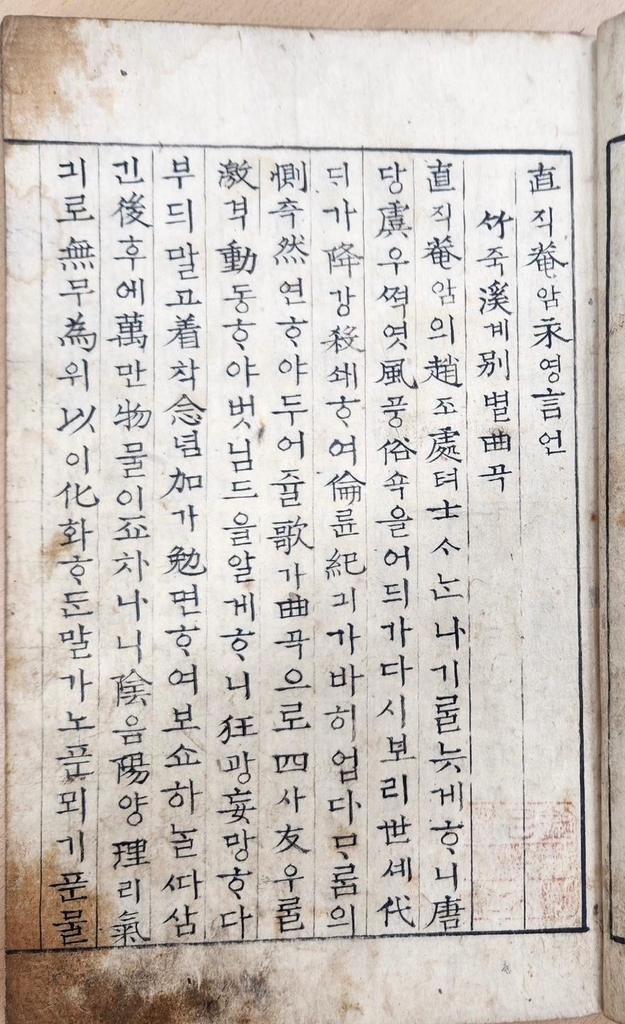 直직菴암永영言언
竹죽溪계别별曲곡
直직菴암의趙조處텨士ᄉᆞ는나기ᄅᆞᆯ늣게ᄒᆞ니唐
당虞우쩍엿風풍俗쇽을어듸가다시보리世셰代
듸가降강殺쇄ᄒᆞ여倫륜紀긔가바히업다ᄆᆞᄅᆞᆷ의
惻측然연ᄒᆞ야두어쥴歌가曲곡으로四사友우ᄅᆞᆯ
激격動동ᄒᆞ야벗님드을알게ᄒᆞ니狂광妄망ᄒᆞ다
부듸말고着착念념加가勉면ᄒᆞ여보쇼하ᄂᆞᆯᄯᅡ삼
긴後후에萬만物물이죠차나니陰음陽양理리氣
긔로無무為위以이化화ᄒᆞ든말가노푼뫼기푼물